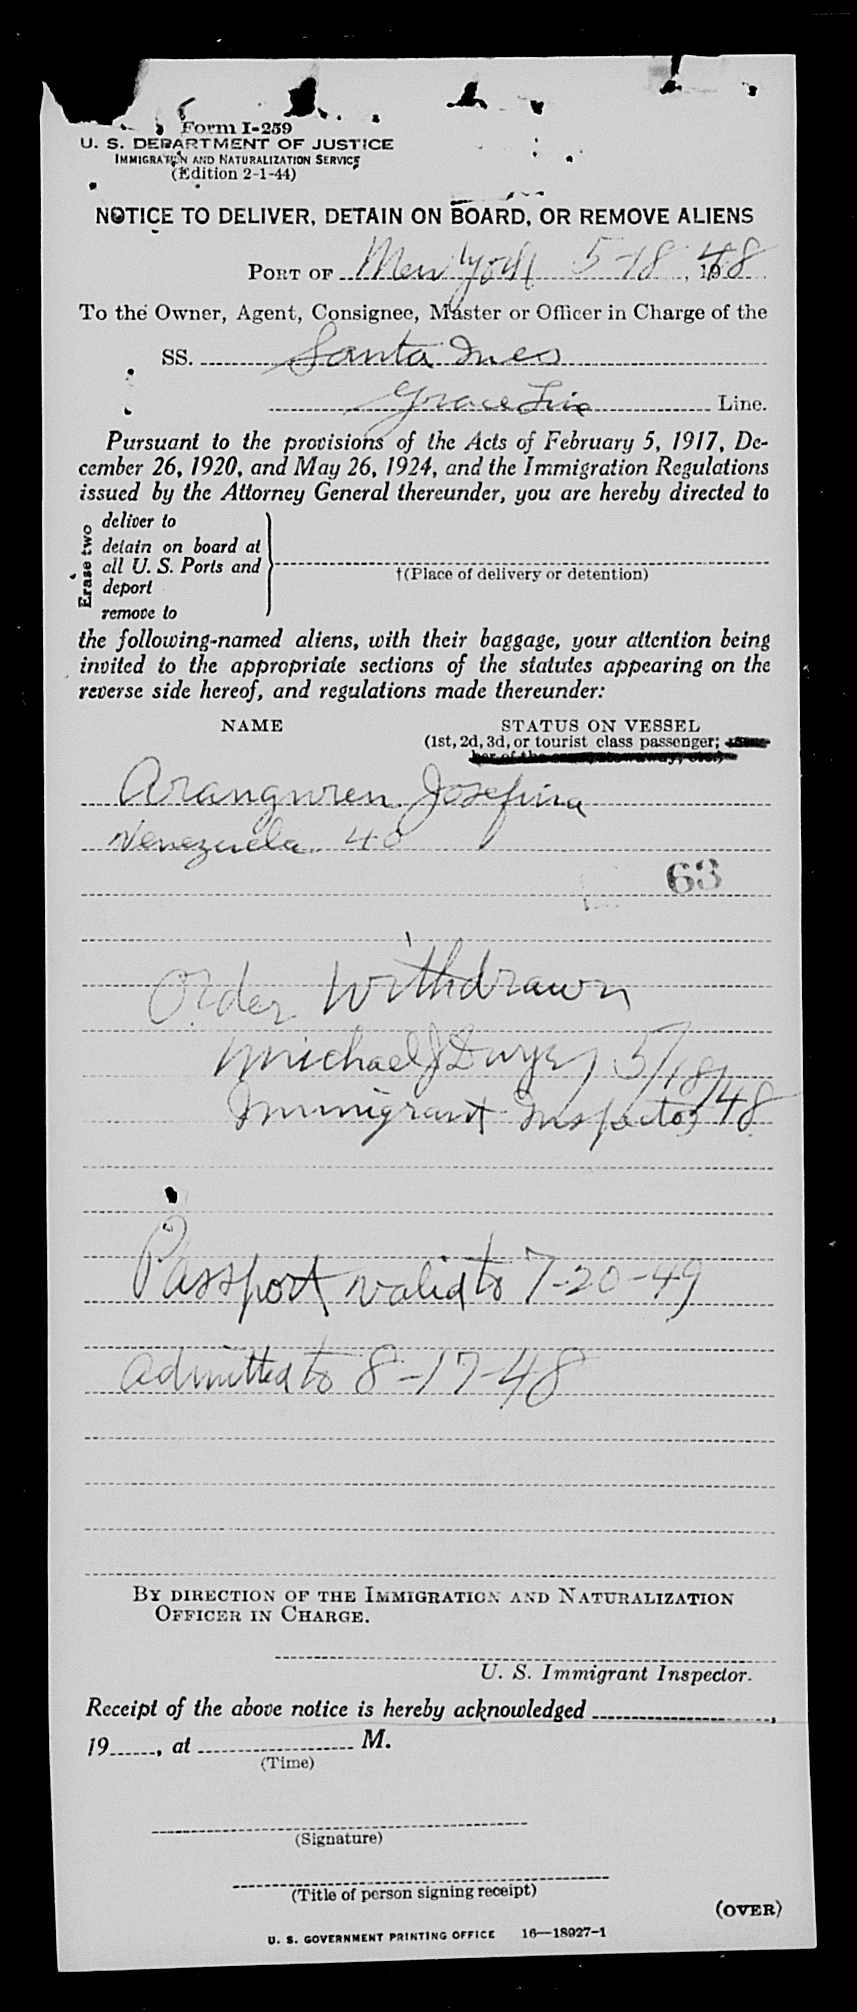 Form I-259
U. S. DEPARTMENT OF JUSTICE
IMMIGRATION AND NATURALIZATION SERVICE
(Edition 2-1-44)
NOTICE TO DELIVER, DETAIN ON BOARD, OR REMOVE ALIENS
PORT OF New York 5-18, 1948
To the Owner, Agent, Consignee, Master or Officer in Charge of the
SS. Santa Ines
Grace Line Line.
Pursuant to the provisions of the Acts of February 5, 1917, De-
cember 26, 1920, and May 26, 1924, and the Immigration Regulations
issued by the Attorney General thereunder, you are hereby directed to
Erase two
deliver to
detain on board at
all U. S. Ports and
deport
remove to
†(Place of delivery or detention)
the following-named aliens, with their baggage, your attention being
invited to the appropriate sections of the statutes appearing on the
reverse side hereof, and regulations made thereunder:
NAME STATUS ON VESSEL
(1st, 2d, 3d, or tourist class passenger;
Aranguren Josefina
Venezuela 40
63
Order Withdrawn
Michael J Dwyer 5/18/48
Immigrant Inspector
Passport valid to 7-20-49
admitted to 8-17-48
BY DIRECTION OF THE IMMIGRATION AND NATURALIZATION
OFFICER IN CHARGE.
U. S. Immigrant Inspector.
Receipt of the above notice is hereby acknowledged ,
19 , at M.
(Time)
(Signature)
(Title of person signing receipt)
(OVER)
U. S. GOVERNMENT PRINTING OFFICE 16—18927-1